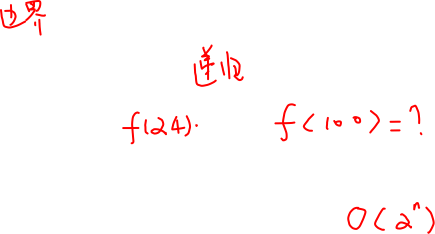 边界
递归
f(24). f(100)=?
O(2ⁿ)